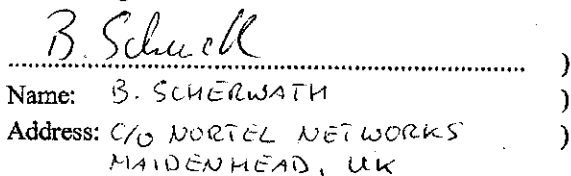 )
Name: B. SCHERWATH )
Address: C/O NORTEL NETWORKS )
MAIDENHEAD, UK